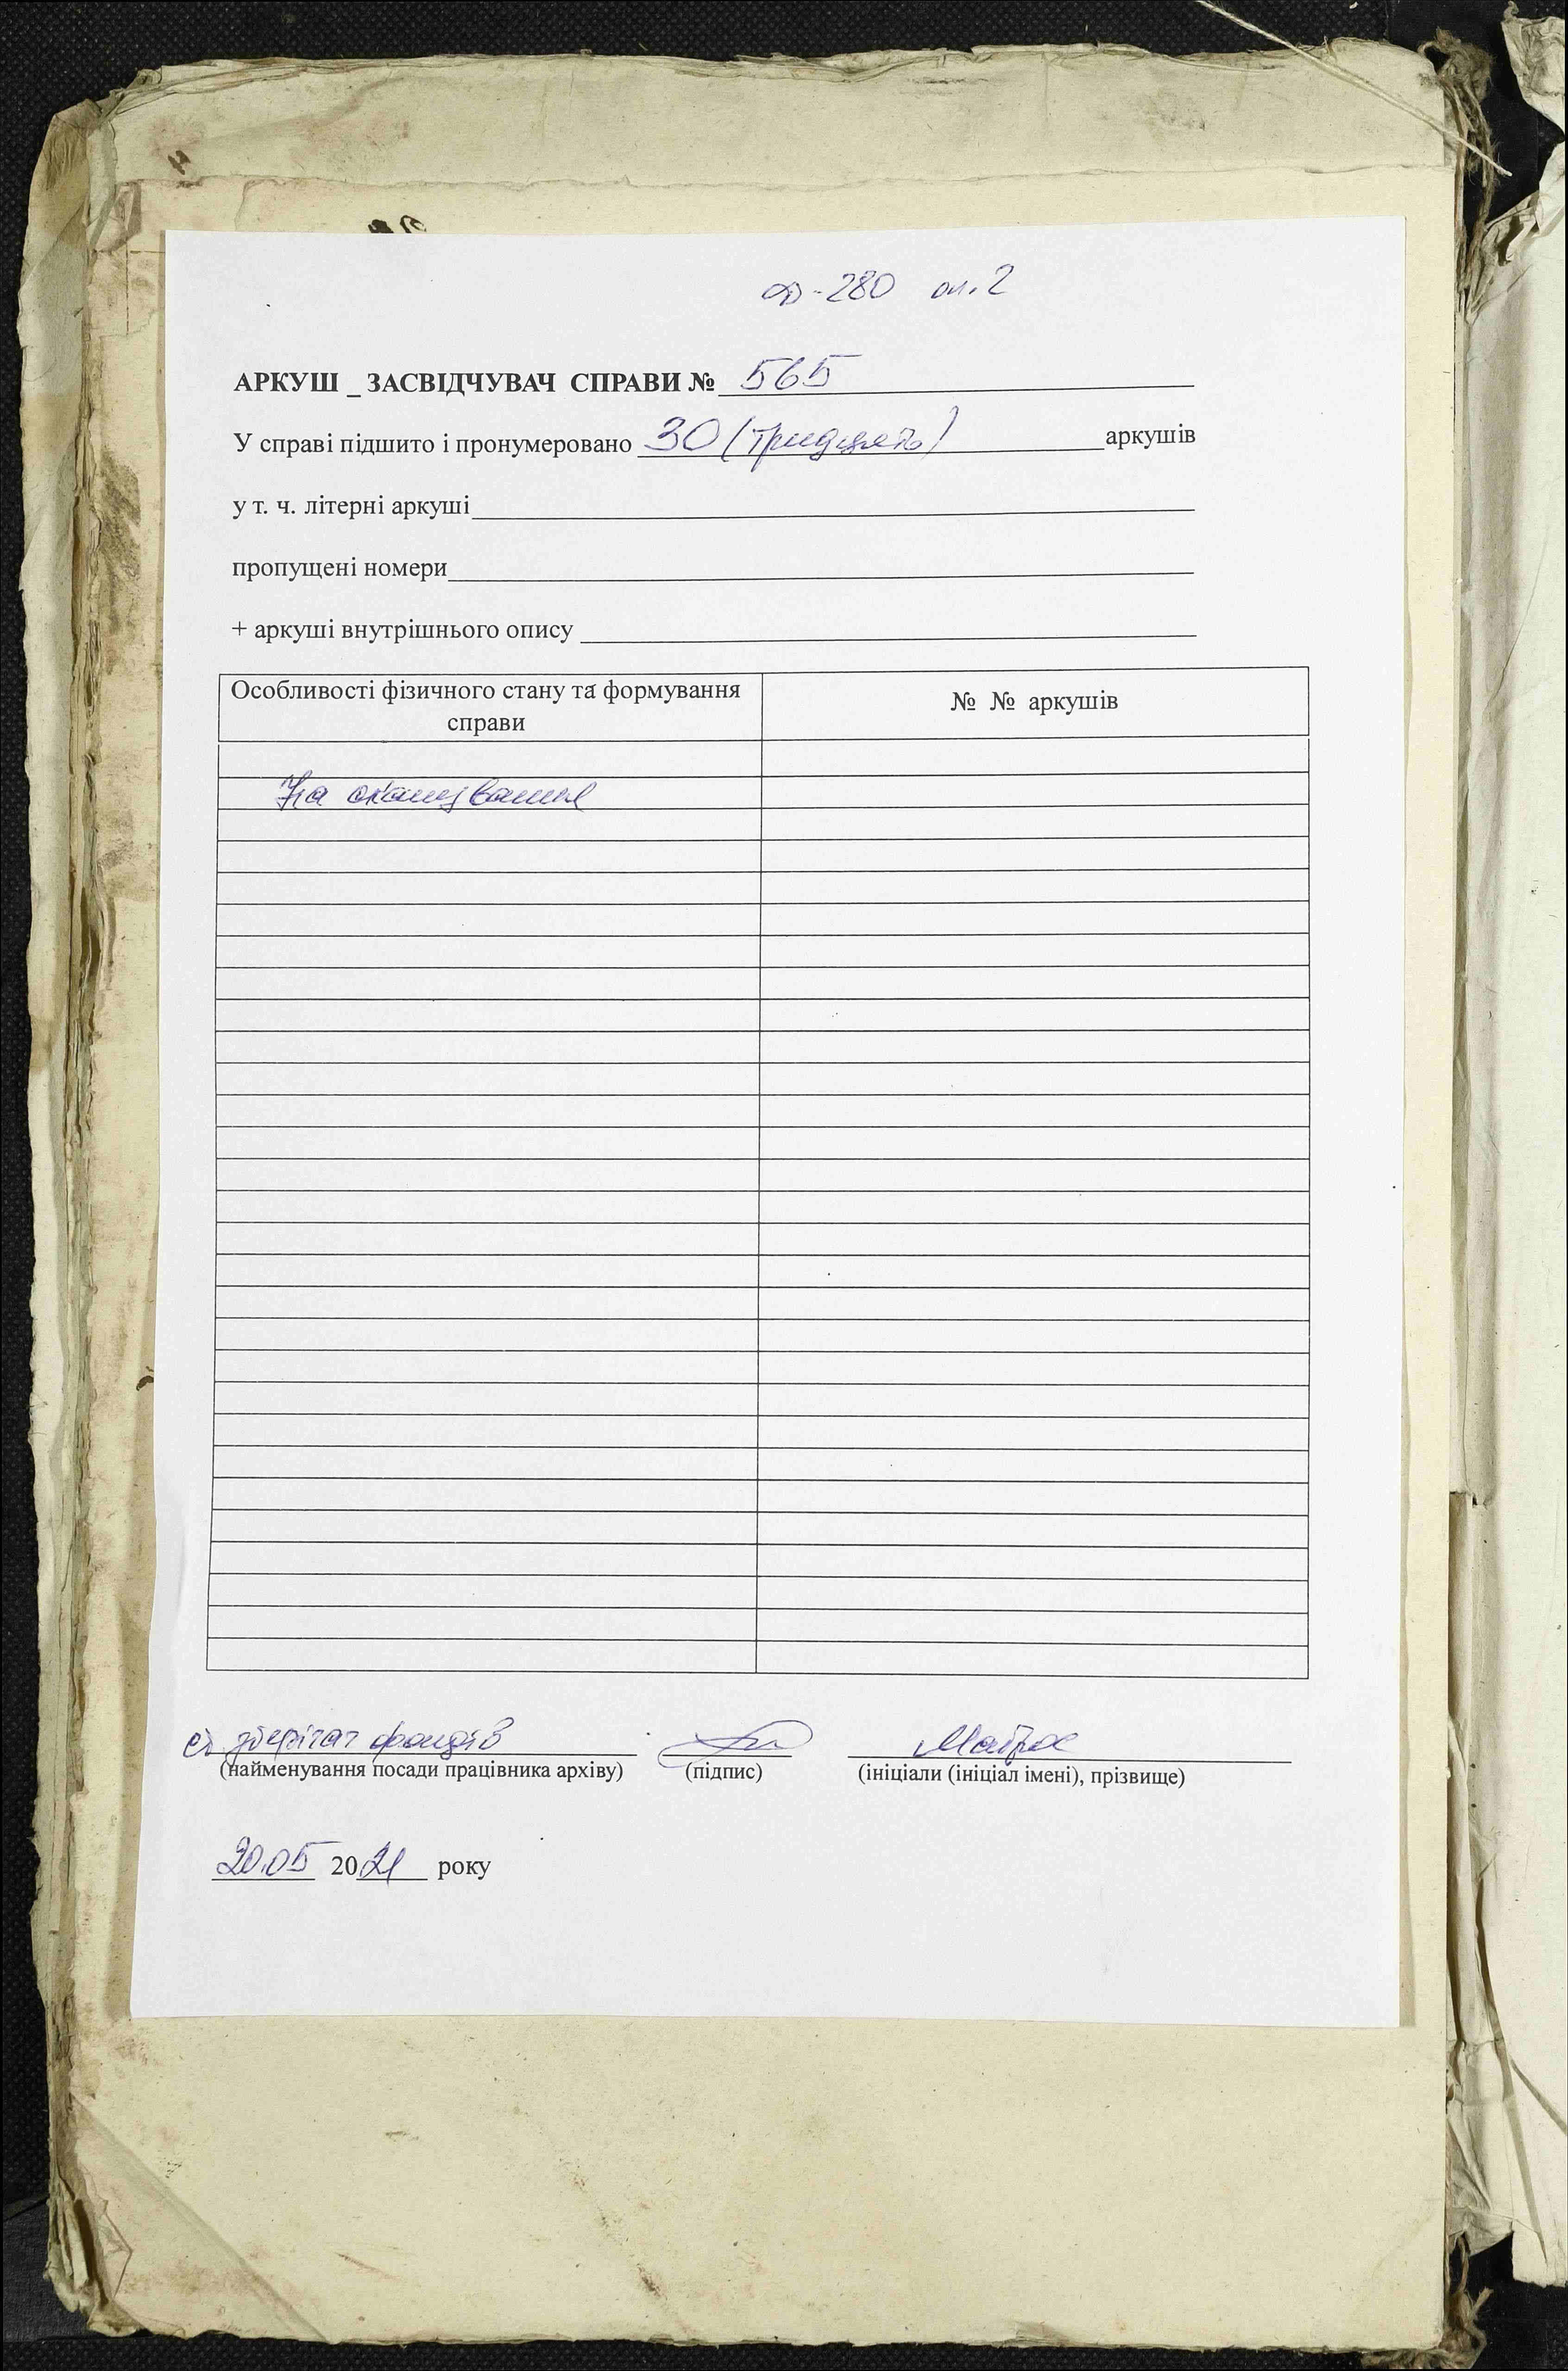 Ф-280 оп.2
АРКУШ _ ЗАСВІДЧУВАЧ СПРАВИ № 565
У справі підшито і пронумеровано 30 (тридцять) аркушів
у т. ч. літерні аркуші
пропущені номери
+ аркуші внутрішнього опису
Особливості фізичного стану та формування справи
№ № аркушів
На сканування
ст зберігач фондів
Матрос
(найменування посади працівника архіву) (підпис) (ініціали (ініціал імені), прізвище)
20.05 2021 року